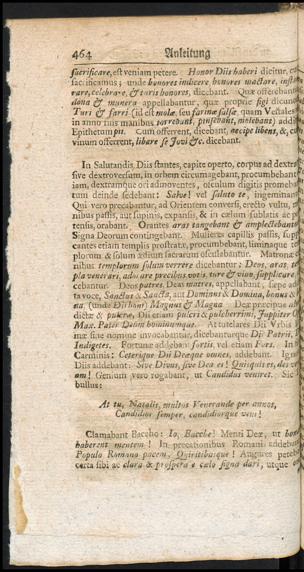 464 Anleitung
sacrificare, est veniam petere. Honor Diis haberi dicitur, cum
sacrificamus; unde honores indicere, honores mactare,
rare, celebrare, & taris honores, dicebant. Quæ offerebant
dona & munera appellabantur, quæ proprie figi dicun
Turi & farri (id est molæ, seu farinæ salsæ, quam Vestales
in anno suis manibus torrebant, pinsebant, molebant) addi
Epithetum pii. Cum offerrent, dicebant, accipe libens, & cum
vinum offerrent, libare se Jovi &c. dicebant.
In Salutandis Diis stantes, capite operto, corpus ad dextr
sive dextroversum, in orbem circumagebant, procumbebant
iam, dextramque ori admoventes, osculum digitis prome
tum deinde sedebant: Salve! vel saluto te, ingeminan
Qui vero precabantur, ad Orientem conversi, erecto vultu,
nibus passis, aut supinis, expansis, & in cælum sublatis ac p
tensis, orabant. Orantes aras tangebant & amplectebant
Signa Deorum contingebant. Mulieres capillis passis, sup
cantes etiam templis prostratæ, procumbebant, liminaque te
plorum & solum ædium sacrarum osculabantur. Matronæ
nibus templorum solum verrere dicebantur: Deos, aras,
pla venerari, adorare precibus vota, ture & vino, supplicare
cebantur. Deos patres, Deas matres, appellabant, sæpe ad
ta voce, Sanctus & Sancta, aut Dominus & Domina, bonus &
na, (unde Dii boni) Magnus & Magna. Deæ præcipue
dictæ & pulcræ, Dii etiam pulcri & pulcherrimi, Juppiter
Max. Pater Deûm hominumque. At tutelares Dii Urbis
mæ sine nomine invocabantur, dicebanturque Dii Patrii,
Indigetes. Fortunæ addebant fortis, vel etiam Fors. In
Carminis: Ceterique Dii Deæque omnes, addebant. Ign
Diis addebant: Sive Divus, sive Dea es! Quisquis es,
am! Genium vero rogabant, ut Candidus veniret. Sic
bullus:
At tu, Natalis, multos Venerande per annos,
Candidior semper, candidiorque veni!
Clamabant Baccho: Io, Bacche! Menti Deæ, ut bon
haberent mentem! In precationibus Romani addebant
Populo Romano pacem, Quiritibusque! Augures petebant
certa sibi ac clara & prospera e cælo signa dari, utque